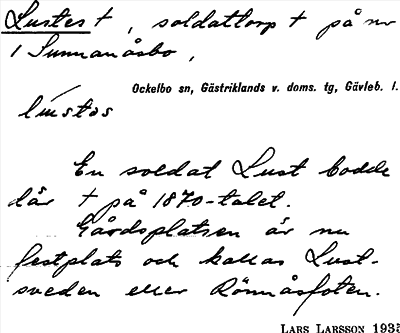 Lustes †, soldattorp † på nr
1 Sunnanåsbo,
Ockelbo sn, Gästriklands v. doms. tg, Gävleb. l.
lústas
En soldat Lust bodde
där † på 1870-talet.
Gårdsplatsen är nu
festplats och kallas Lust-
sveden eller Rönnåsfoten.
LARS LARSSON 1935